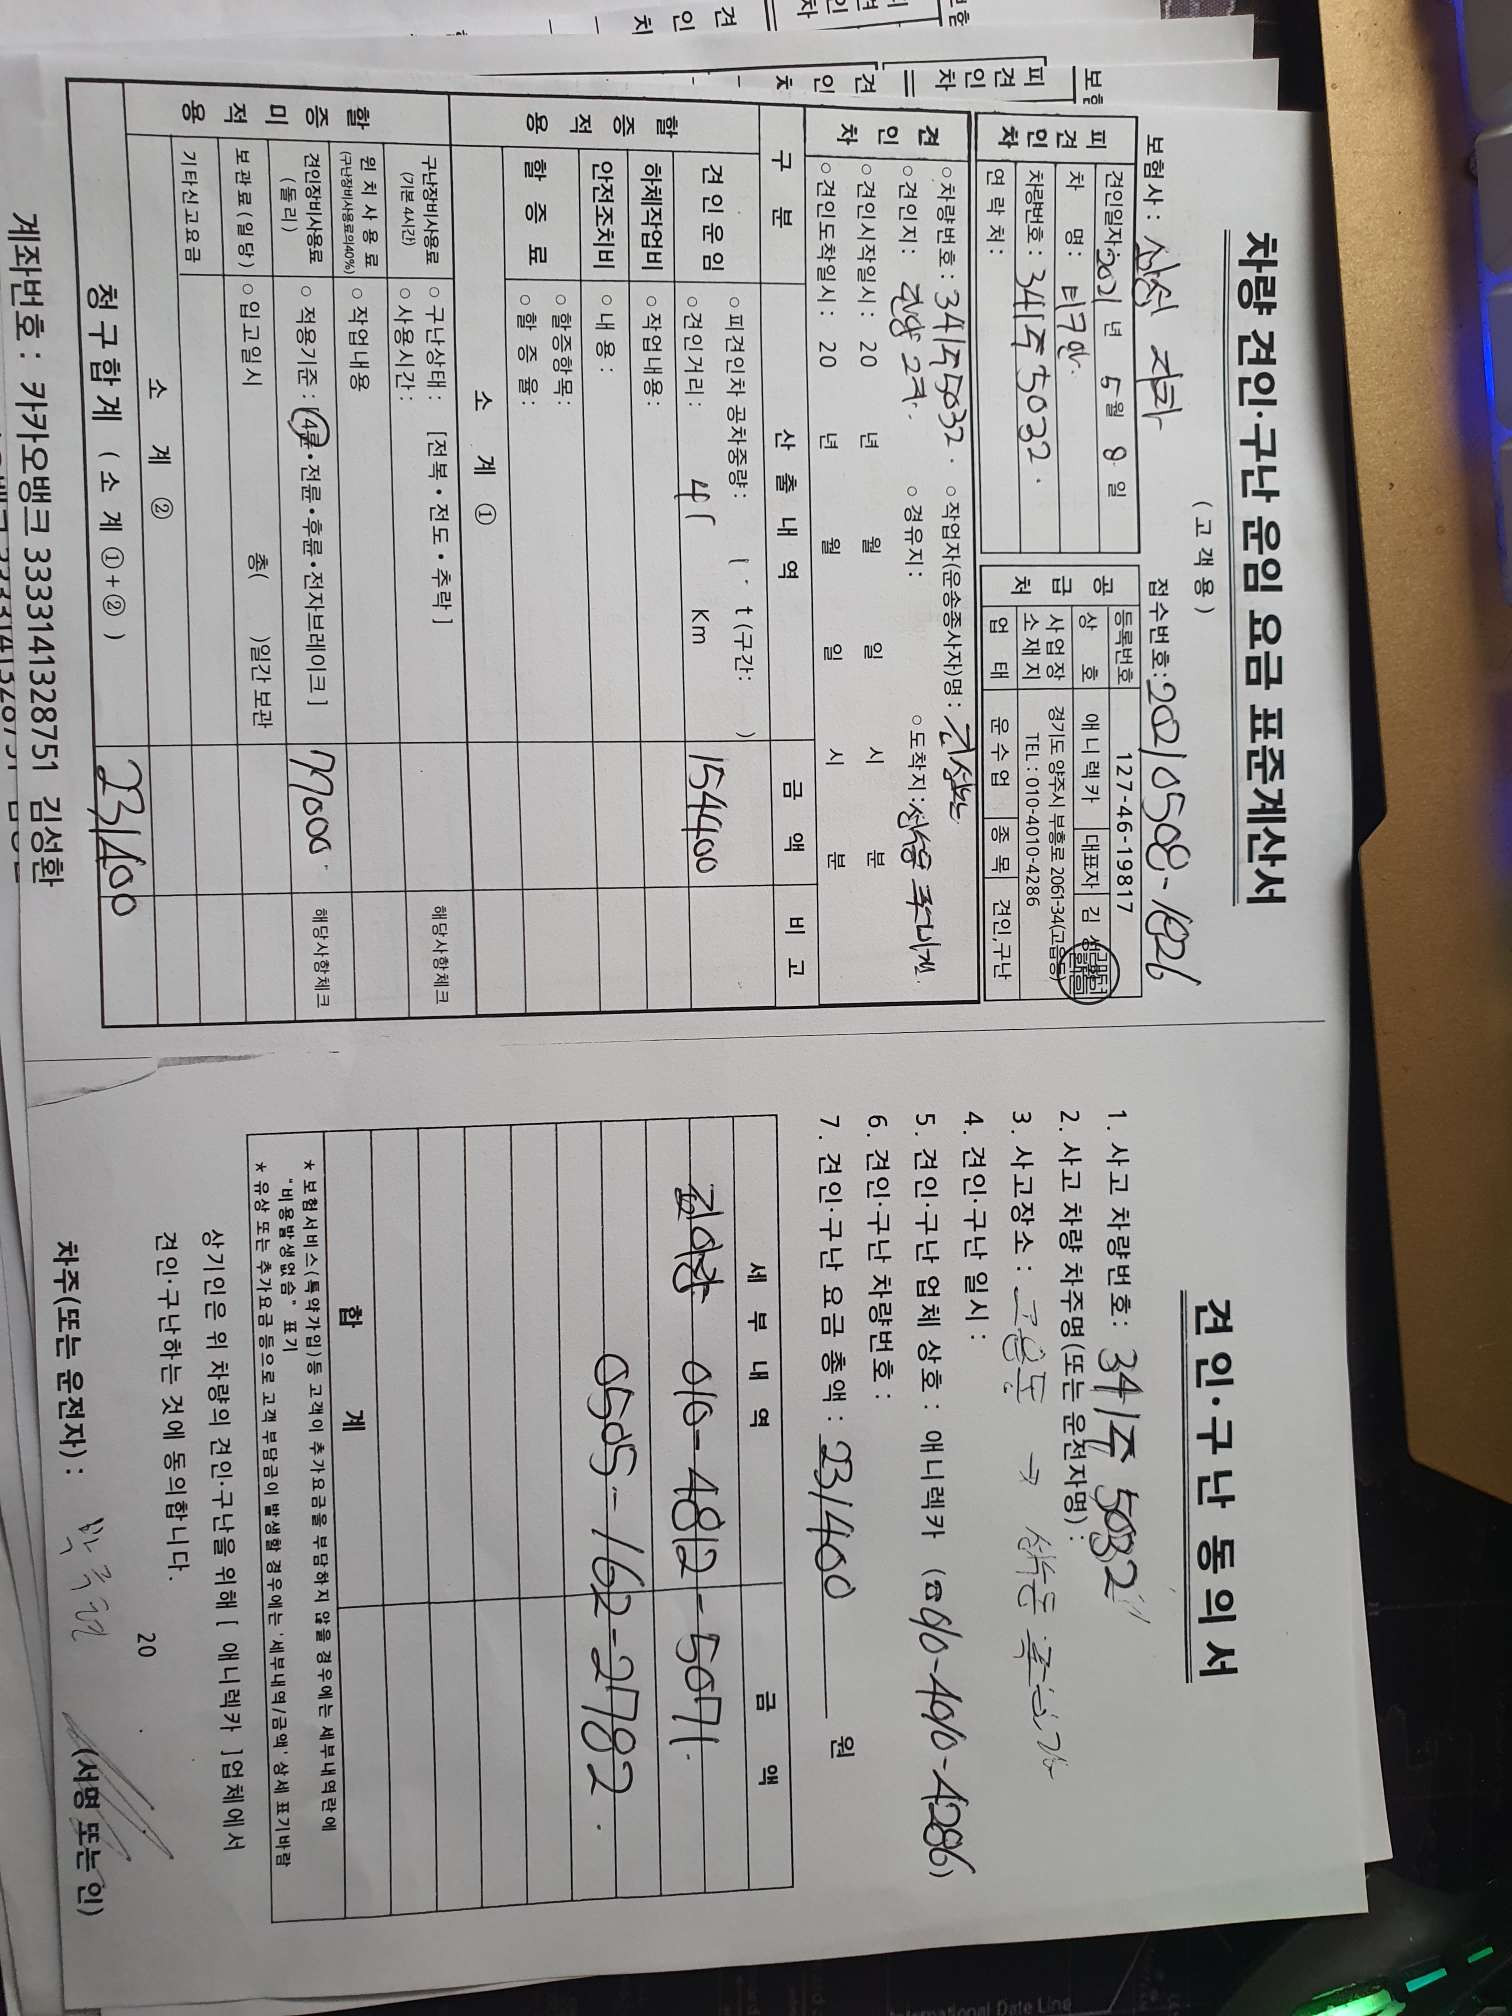 차량 견인·구난 운임 요금 표준계산서
( 고 객 용 )
보험사 : 삼성 접수번호: 20210508-1826
피견인차
견인일자: 2021 년 5월 8 일
차 명 :
차량번호 : 34주5032.
연 락 처 :
공급처
등록번호 127-46-19817
상 호 애니렉카 대표자 김
사업장소재지 경기도 양주시 부흥로 2061-34(고읍동)
TEL : 010-4010-4286
업 태 운 수 업 종 목 견인,구난
견인차
○차량번호 : 34주5032. ○작업자(운송종사자)명 :
○견인지: ○경유지: ○도착지:
○견인시작일시 : 20 년 월 일 시 분
○견인도착일시 : 20 년 월 일 시 분
구 분 산 출 내 역 금 액 비 고
할증적용
견 인 운 임 ○피견인차 공차중량 : t (구간: )
○견인거리 : 41 Km 154400
하체작업비 ○작업내용 :
안전조치비 ○내 용 :
할 증 료 ○할증항목:
○할 증 율 :
소 계 ①
할증미적용
구난장비사용료 (기본 4시간) ○구난상태 : [전복·전도·추락]
○사용시간 : 해당사항체크
윈 치 사 용 료 (구난장비사용료의40%) ○작업내용
견인장비사용료 ( 돌 리 ) ○적용기준 : [4륜·전륜·후륜·전자브레이크] 77000. 해당사항체크
보 관 료 ( 일 당 ) ○입고일시 총( )일간 보관
기타신고요금
소 계 ②
청 구 합 계 ( 소 계 ① + ② ) 231400
계좌번호 : 카카오뱅크 3333141328751 김성환
견 인 · 구 난 동 의 서
1. 사고 차량번호 : 34주 5032
2. 사고 차량 차주명(또는 운전자명) :
3. 사고장소 : 고읍동 →
4. 견인·구난 일시 :
5. 견인·구난 업체 상호 : 애니렉카 (☎ 010-4010-4286)
6. 견인·구난 차량번호 :
7. 견인·구난 요금 총액 : 231400 원
세 부 내 역 금 액
010-4812-5071.
0505-162-2782.
합 계
* 보험서비스(특약가입)등 고객이 추가요금을 부담하지 않을 경우에는 세부내역란에
"비용발생없음" 표기
* 유상 또는 추가요금 등으로 고객 부담금이 발생할 경우에는 '세부내역/금액' 상세 표기바람
상기인은 위 차량의 견인·구난을 위해 [ 애니렉카 ]업체에서
견인·구난하는 것에 동의합니다.
20 .
차주(또는 운전자) : (서명 또는 인)